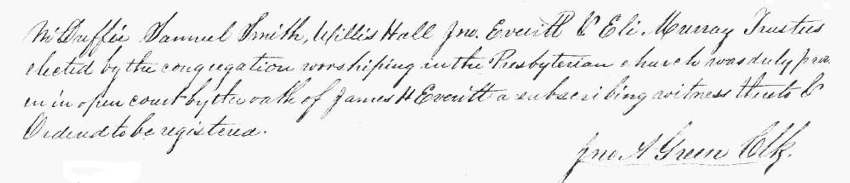 McDuffie Samuel Smith, Willis Hall Jno. Everitt & Eli. Murray Trustees
elected by the congregation worshiping in the Presbyterian church was duly prov
en in open court by the oath of James H Everitt a subscribing witness thereto &
Ordered to be registered.
Jno. A Green Clk.